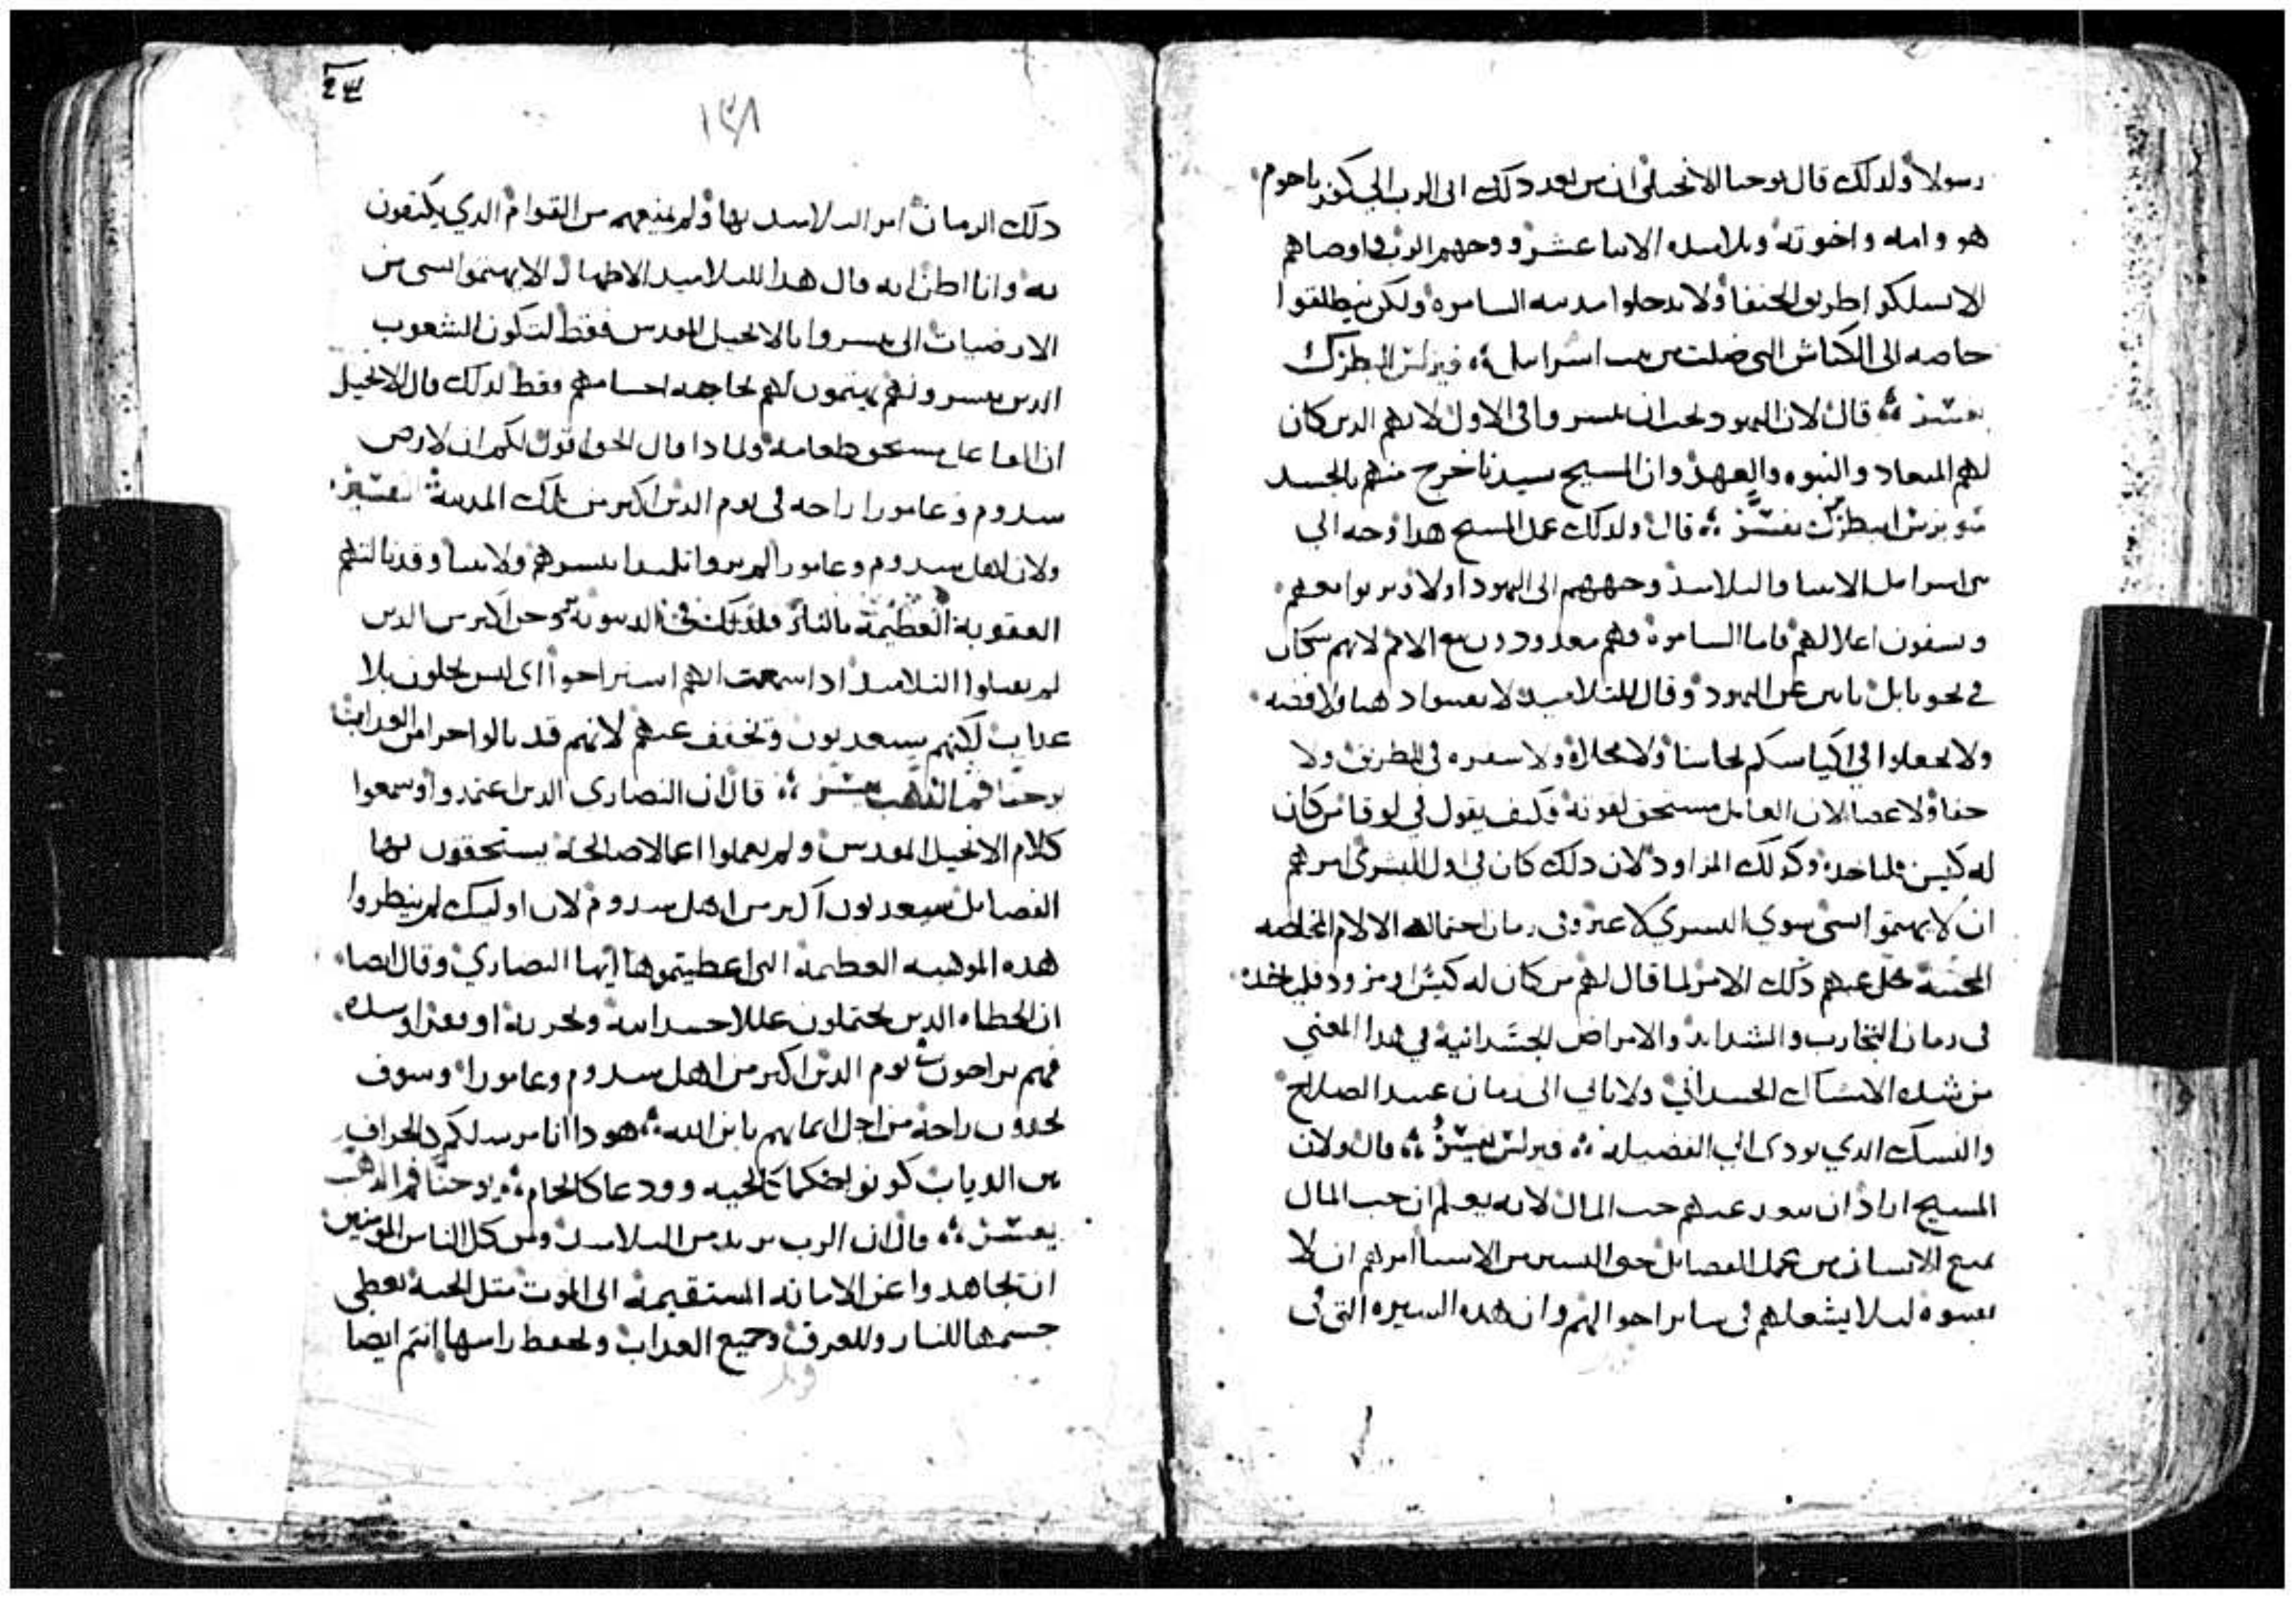 رسولا ولدلك قال يوحنا الانجيلي ان من بعد دلك اتى الرب الى كفرناحوم
هو وامه واخوته وتلاميده الاتنا عشر ووجههم الرب واوصاهم
الا تسلكوا طريق الحنفا ولا تدخلوا مدينه السامره ولكن ينطلقوا
خاصه الى الكباش التى ضلت من بيت اسراييل ؞ فيرلس البطرك
يفسر ؞ قال لان اليهود يجب ان يبشروا فى الاول لانهم الدين كان
لهم الميعاد والنبوه والعهد وان المسيح سيدنا خرج منهم بالجسد
سويرس البطرك يفسر ؞ قال ولدلك عمل المسيح هدا وجه الي
بني اسراييل الانبيا والتلاميد وجههم الى اليهود اولا
ويشفون اعلالهم فاما السامره فهم معدودون مع الامم لانهم سكان
في نحو بابل عن اليهود وقال للتلاميد لا تقتنوا دهبا ولا فضه
ولا تجعلوا في اكياسكم نحاسا ولا مخلاه ولا سفره فى الطريق ولا
حفا ولا عصا لان العامل مستحق لقوته وكيف يقول فى لوقا من كان
له كيس فلياخده وكدلك المزاود لان دلك كان فى اول البشرى امرهم
ان لا يهتموا بشى سوي البشري لا غير وفى زمان احتماله الالام المخلصه
المحييه حل عنهم دلك الامر لما قال لهم من كان له كيس او مزود فلياخده
فى زمان التجارب والشدايد والامراض الجسدانية في هدا المعني
من شده الانساك الجسداني ولا ياتي الى زمان عتيد الصلاح
والنسك الدي يودى الى الفضيله ؞ فيرلس يفسر ؞ قال ولان
المسيح اراد ان يبعد عنهم حب المال لانه يعلم ان حب المال
يمنع الانسان من عمل الفضايل حتى اليسير من الاشيا امرهم ان لا
يقتنوه ليلا يشغلهم فى ما يراحوا اليهم وان هده السيره التى فى
١٣٨
دلك الزمان امر التلاميد بها ولم يمنعهم من القوام الدي يكتفون
به وانا اظن انه قال هدا للتلاميد الاطهار الا يهتموا بشى من
الارضيات التى يبشروا بالانجيل المقدس فقط لتكون الشعوب
الدين يبشرونهم يهتمون لهم بحاجه اجسامهم فقط لدلك قال الانجيل
ان الفاعل مستحق طعامه ولمادا قال الحق اقول لكم ان لارض
سدوم وعامورا راحه فى يوم الدين اكتر من تلك المدينة يفسر
ولان اهل سدوم وعامورا لم يروا تلميدا يبشرهم ولا نبيا وقد نالتهم
العقوبة العظيمة بالنار فلدلك فى الدينونه نوحن اكتر من الدين
لم يقبلوا التلاميد ادا سمعت انهم استراحوا اى ليس يحلون بلا
عداب لكنهم سيعدبون وتخفف عنهم لانهم قد نالوا جزا من العداب
يوحنا فم الدهب يفسر ؞ قال ان النصارى الدين اعتمدوا وسمعوا
كلام الانجيل المقدس ولم يعملوا اعمالا صالحة يستحقون بها
الفضايل سيعدبون اكتر من اهل سدوم لان اوليك لم ينظروا
هده الموهبه العظيمه التى اعطيتموها ايها النصاري وقال ايضا
ان الخطاه الدين يحتملون علل الاجساد
فهم يراحون يوم الدين اكتر من اهل سدوم وعامورا وسوف
يجدون راحة من اجل ايمانهم بابن الله ؞ هودا انا مرسلكم كالخراف
بين الدياب كونوا حكما كالحيه وودعا كالحمام ؞ يوحنا فم الدهب
يفسر ؞ قال ان الرب يريد من التلاميد ومن كل الناس المومنين
ان تجاهدوا عن الامانه المستقيمه الى الموت متل الحيه تعطى
جسمها للنار وللغرق وجميع العداب وتحفظ راسها انتم ايضا